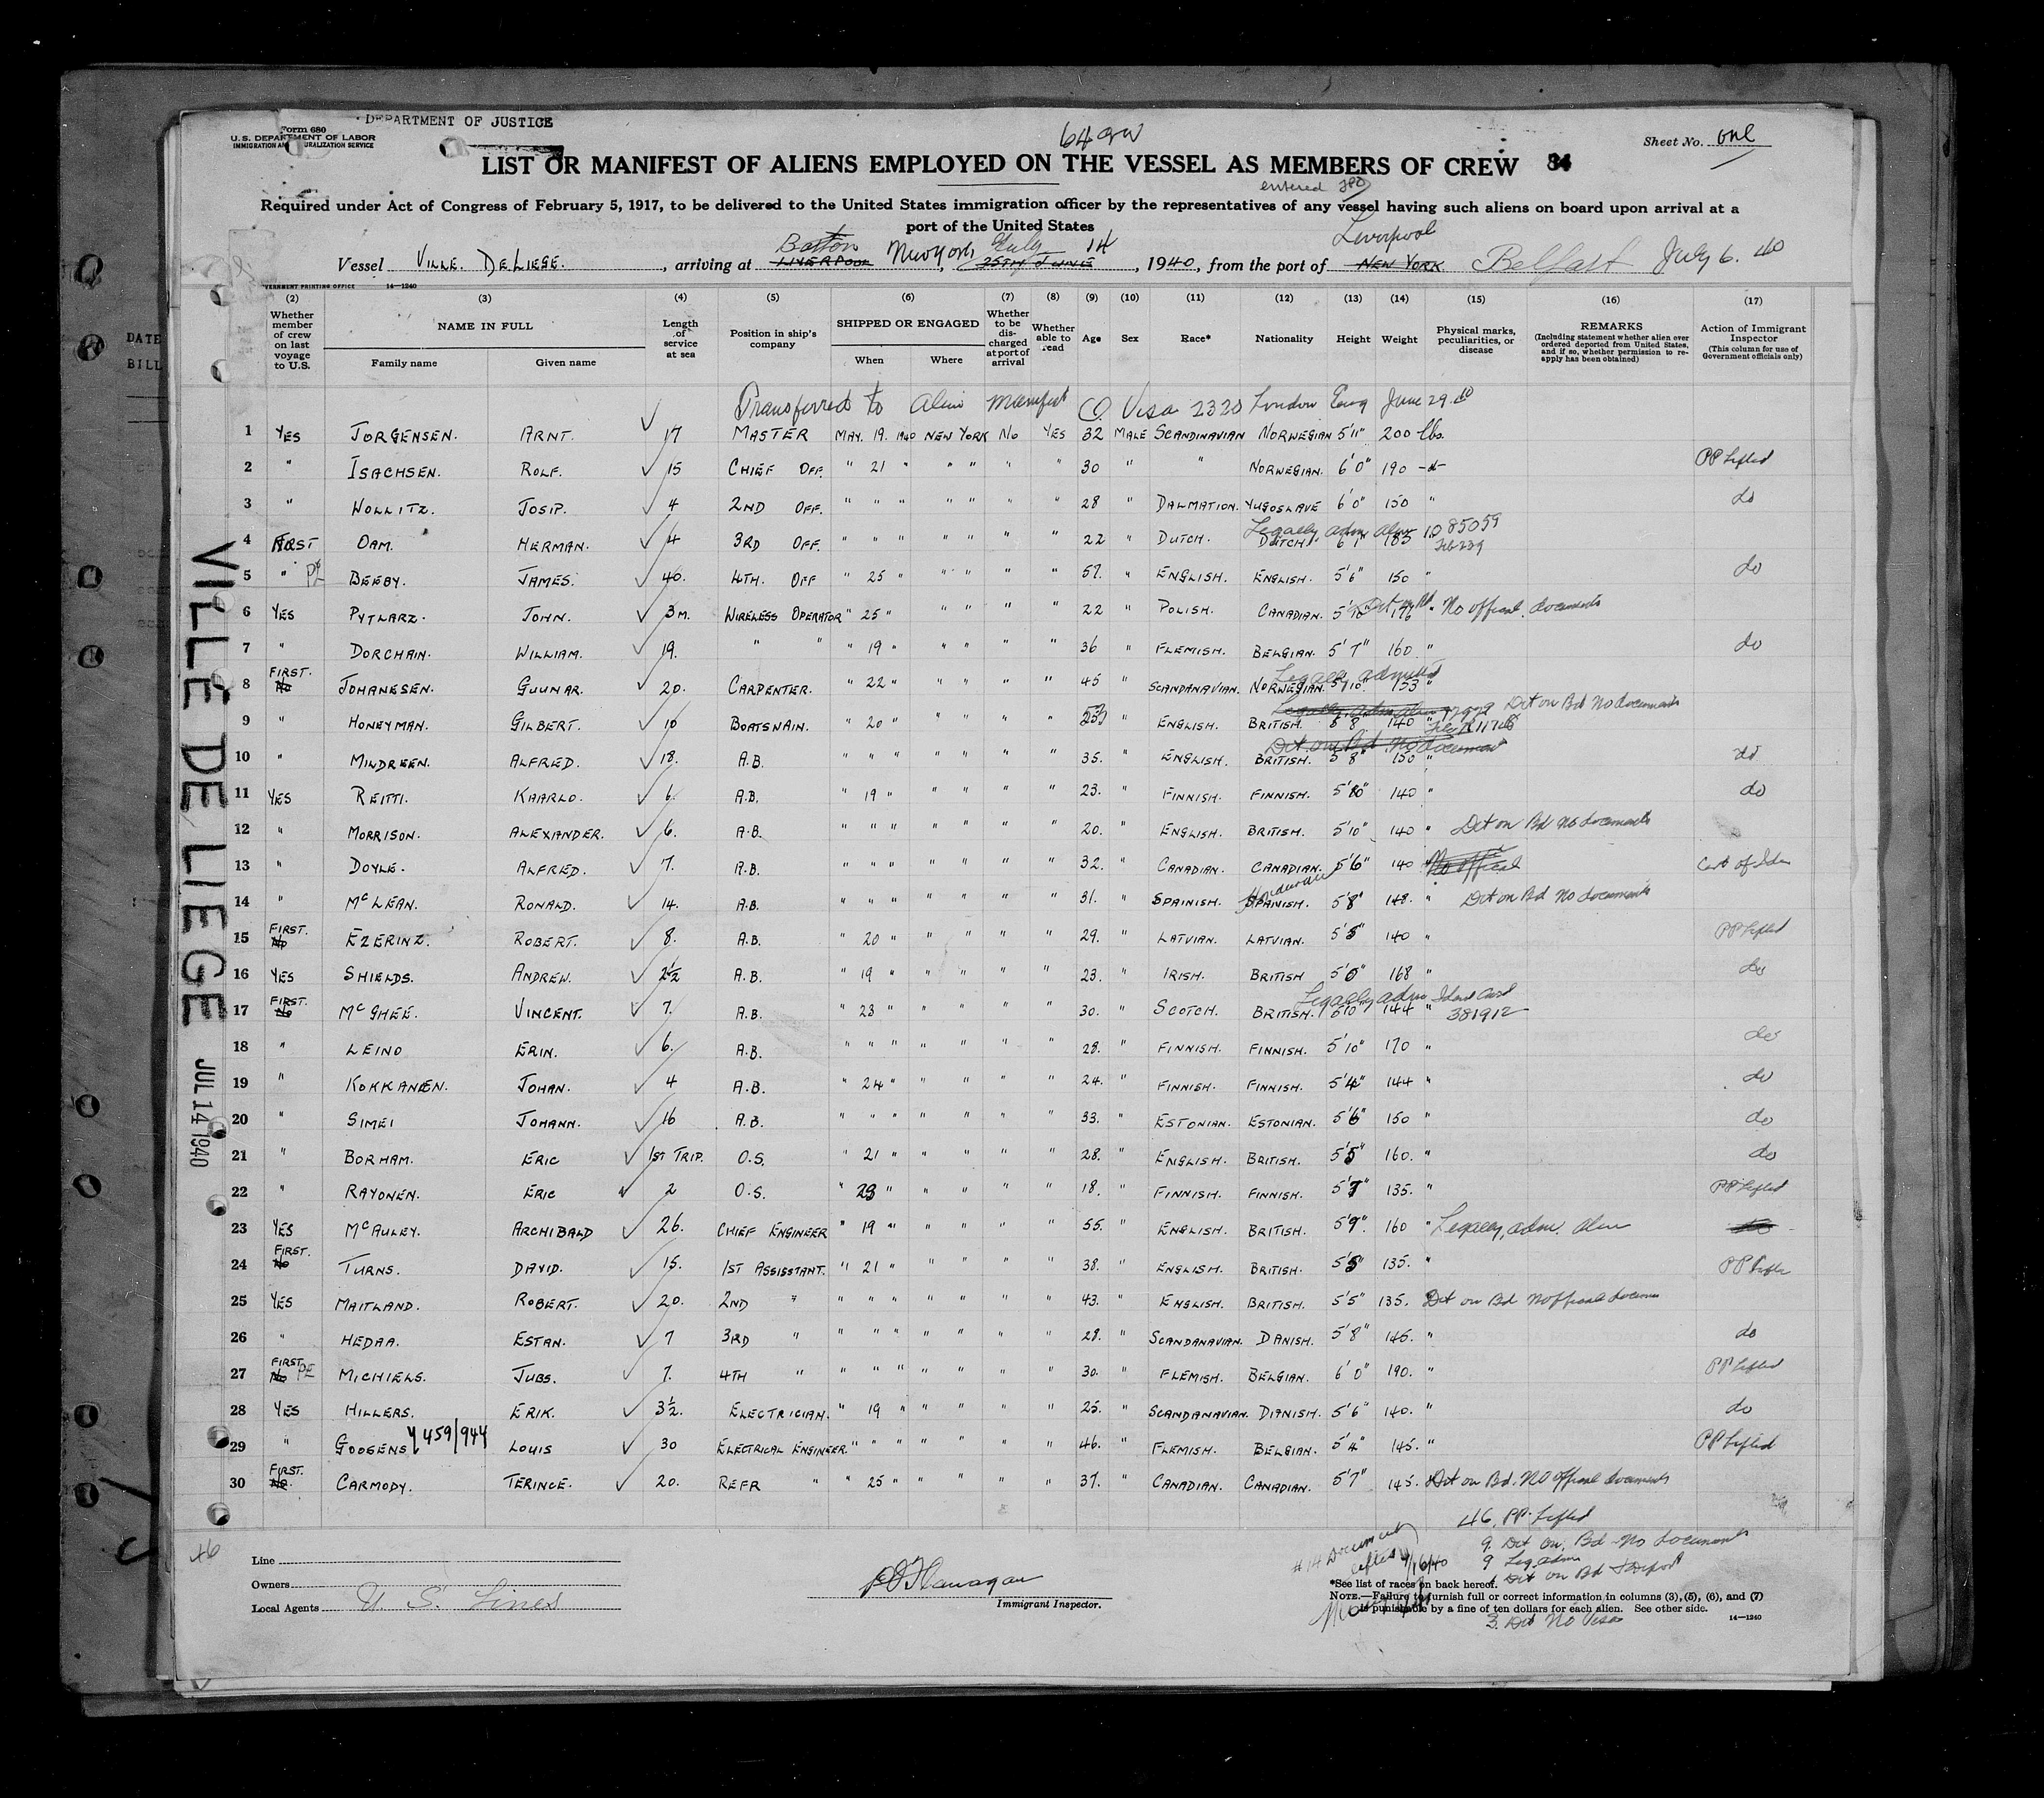 DEPARTMENT OF JUSTICE
Form 680
U.S. DEPARTMENT OF LABOR
IMMIGRATION AND NATURALIZATION SERVICE
Sheet No. one
LIST OR MANIFEST OF ALIENS EMPLOYED ON THE VESSEL AS MEMBERS OF CREW 84
entered
Required under Act of Congress of February 5, 1917, to be delivered to the United States immigration officer by the representatives of any vessel having such aliens on board upon arrival at a
port of the United States
Boston Liverpool
Vessel VILLE. DELIEGE. , arriving at LIVERPOOL New York , 25TH JUNE July 14 , 1940, from the port of NEW YORK Belfast July 6. 40
VERNMENT PRINTING OFFICE 14—1240
(2) (3) (4) (5) (6) (7) (8) (9) (10) (11) (12) (13) (14) (15) (16) (17)
Whether member of crew on last voyage to U.S. NAME IN FULL Family name Given name Length of service at sea Position in ship's company SHIPPED OR ENGAGED When Where Whether to be discharged at port of arrival Whether able to read Age Sex Race* Nationality Height Weight Physical marks, peculiarities, or disease REMARKS (Including statement whether alien ever ordered deported from United States, and if so, whether permission to reapply has been obtained) Action of Immigrant Inspector (This column for use of Government officials only)
Transferred to Alien Manifest Visa 2320 London Eng June 29.40
1 YES JORGENSEN. ARNT. 17 MASTER MAY. 19. 1940 NEW YORK NO YES 32 MALE SCANDINAVIAN NORWEGIAN 5'11" 200 lbs.
2 " ISACHSEN. ROLF. 15 CHIEF OFF. " 21 " " " " " 30 " " NORWEGIAN. 6'0" 190 -d- PP Lifted
3 " WOLLITZ. JOSIP. 4 2ND OFF. " " " " " " " 28 " DALMATION. YUGOSLAVE 6'0" 150 " do
Legally adm alien ID 85059
4 FIRST OAM. HERMAN. 4 3RD OFF. " " " " " " " 22 " DUTCH. DUTCH. 6'1" 185
5 " BEEBY. JAMES. 40. 4TH. OFF " 25 " " " " " 57. " ENGLISH. ENGLISH. 5'6" 150 " do
6 YES PYTLARZ. JOHN. 3M. WIRELESS OPERATOR " 25 " " " " " 22 " POLISH. CANADIAN. 5'10" 176 " No official documents
7 " DORCHAIN. WILLIAM. 19. " " " 19 " " " " " 36 " FLEMISH. BELGIAN. 5'7" 160 " do
Legally admitted
8 FIRST. No JOHANESEN. GUUNAR. 20. CARPENTER. " 22 " " " " " 45 " SCANDANAVIAN. NORWEGIAN. 5'10" 153 "
9 " HONEYMAN. GILBERT. 10 BOATSWAIN. " 20 " " " " " 53 " ENGLISH. BRITISH. 5'8" 140 " Det on Bd No documents
Det on Bd No document
10 " MILDREEN. ALFRED. 18. A.B. " " " " " " " 35. " ENGLISH. BRITISH. 5'8" 150 " do
11 YES REITTI. KAARLO. 6. A.B. " 19 " " " " " 23. " FINNISH. FINNISH. 5'10" 140 " do
12 " MORRISON. ALEXIANDER. 6. A.B. " " " " " " " 20. " ENGLISH. BRITISH. 5'10" 140 " Det on Bd No documents
13 " DOYLE. ALFRED. 7. A.B. " " " " " " " 32. " CANADIAN. CANADIAN. 5'6" 140 No official Cert of Iden
14 " McLEAN. RONALD. 14. A.B. " " " " " " " 31. " SPAINISH. SPANISH. Honduran 5'8" 148. " Det on Bd No documents
15 FIRST. No EZERINZ. ROBERT. 8. A.B. " 20 " " " " " 29. " LATVIAN. LATVIAN. 5'5" 140 " PP Lifted
16 YES SHIELDS. ANDREW. 2½ A.B. " 19 " " " " " 23. " IRISH. BRITISH 5'0" 168 " do
Legally adm Ident Card
17 FIRST. No McGHEE. VINCENT. 7. A.B. " 23 " " " " " 30. " SCOTCH. BRITISH. 5'10" 144 " 381912
18 " LEINO ERIN. 6. A.B. " " " " " " " 28. " FINNISH. FINNISH. 5'10" 170 " do
19 " KOKKANEN. JOHAN. 4 A.B. " 24 " " " " " 24. " FINNISH. FINNISH. 5'4" 144 " do
20 " SIMEI JOHANN. 16 A.B. " " " " " " " 33. " ESTONIAN. ESTONIAN. 5'6" 150 " do
21 " BORHAM. ERIC 1ST TRIP. O.S. " 21 " " " " " 28. " ENGLISH. BRITISH. 5'5" 160. " do
22 " RAYONEN. ERIC 2 O.S. " 23 " " " " " 18. " FINNISH. FINNISH. 5'7" 135. " PP Lifted
23 YES McAULEY. ARCHIBALD 26. CHIEF ENGINEER " 19 " " " " " 55. " ENGLISH. BRITISH. 5'9". 160 " Legally adm. Alien
24 FIRST. No TURNS. DAVID. 15. 1ST ASSISSTANT. " 21 " " " " " 38. " ENGLISH. BRITISH. 5'5" 135. " PP Lifted
25 YES MAITLAND. ROBERT. 20. 2ND " " " " " " " " 43. " ENGLISH. BRITISH. 5'5" 135. Det on Bd No official documen
26 " HEDAA. ESTAN. 7 3RD " " " " " " " " 28. " SCANDANAVIAN. DANISH. 5'8" 145. " do
27 FIRST. No PE MICHIELS. JUBS. 7. 4TH " " " " " " " " 30. " FLEMISH. BELGIAN. 6'0" 190. " PP Lifted
28 YES HILLERS. ERIK. 3½. ELECTRICIAN. " 19 " " " " " 25. " SCANDANAVIAN. DIANISH. 5'6" 140. " do
29 " GOOGENS 459/944 LOUIS 30 ELECTRICAL ENGINEER. " " " " " " " 46. " FLEMISH. BELGIAN. 5'4" 145. " PP Lifted
30 FIRST. No. CARMODY. TERINCE. 20. REFR " " 25 " " " " " 37. " CANADIAN. CANADIAN. 5'7" 145. Det on Bd. No official documents
VILLE DE LIEGE JUL 14 1940
46. PP. Lifted
9. Det on. Bd - No Documents
9 Leg. adm
1 Det on Bd & Deport
3. Det No Visas
46
Line
Owners
Local Agents U. S. Lines
Immigrant Inspector.
*See list of races on back hereof.
NOTE.—Failure to furnish full or correct information in columns (3), (5), (6), and (7)
is punishable by a fine of ten dollars for each alien. See other side.
14—1240
DATE
BILL